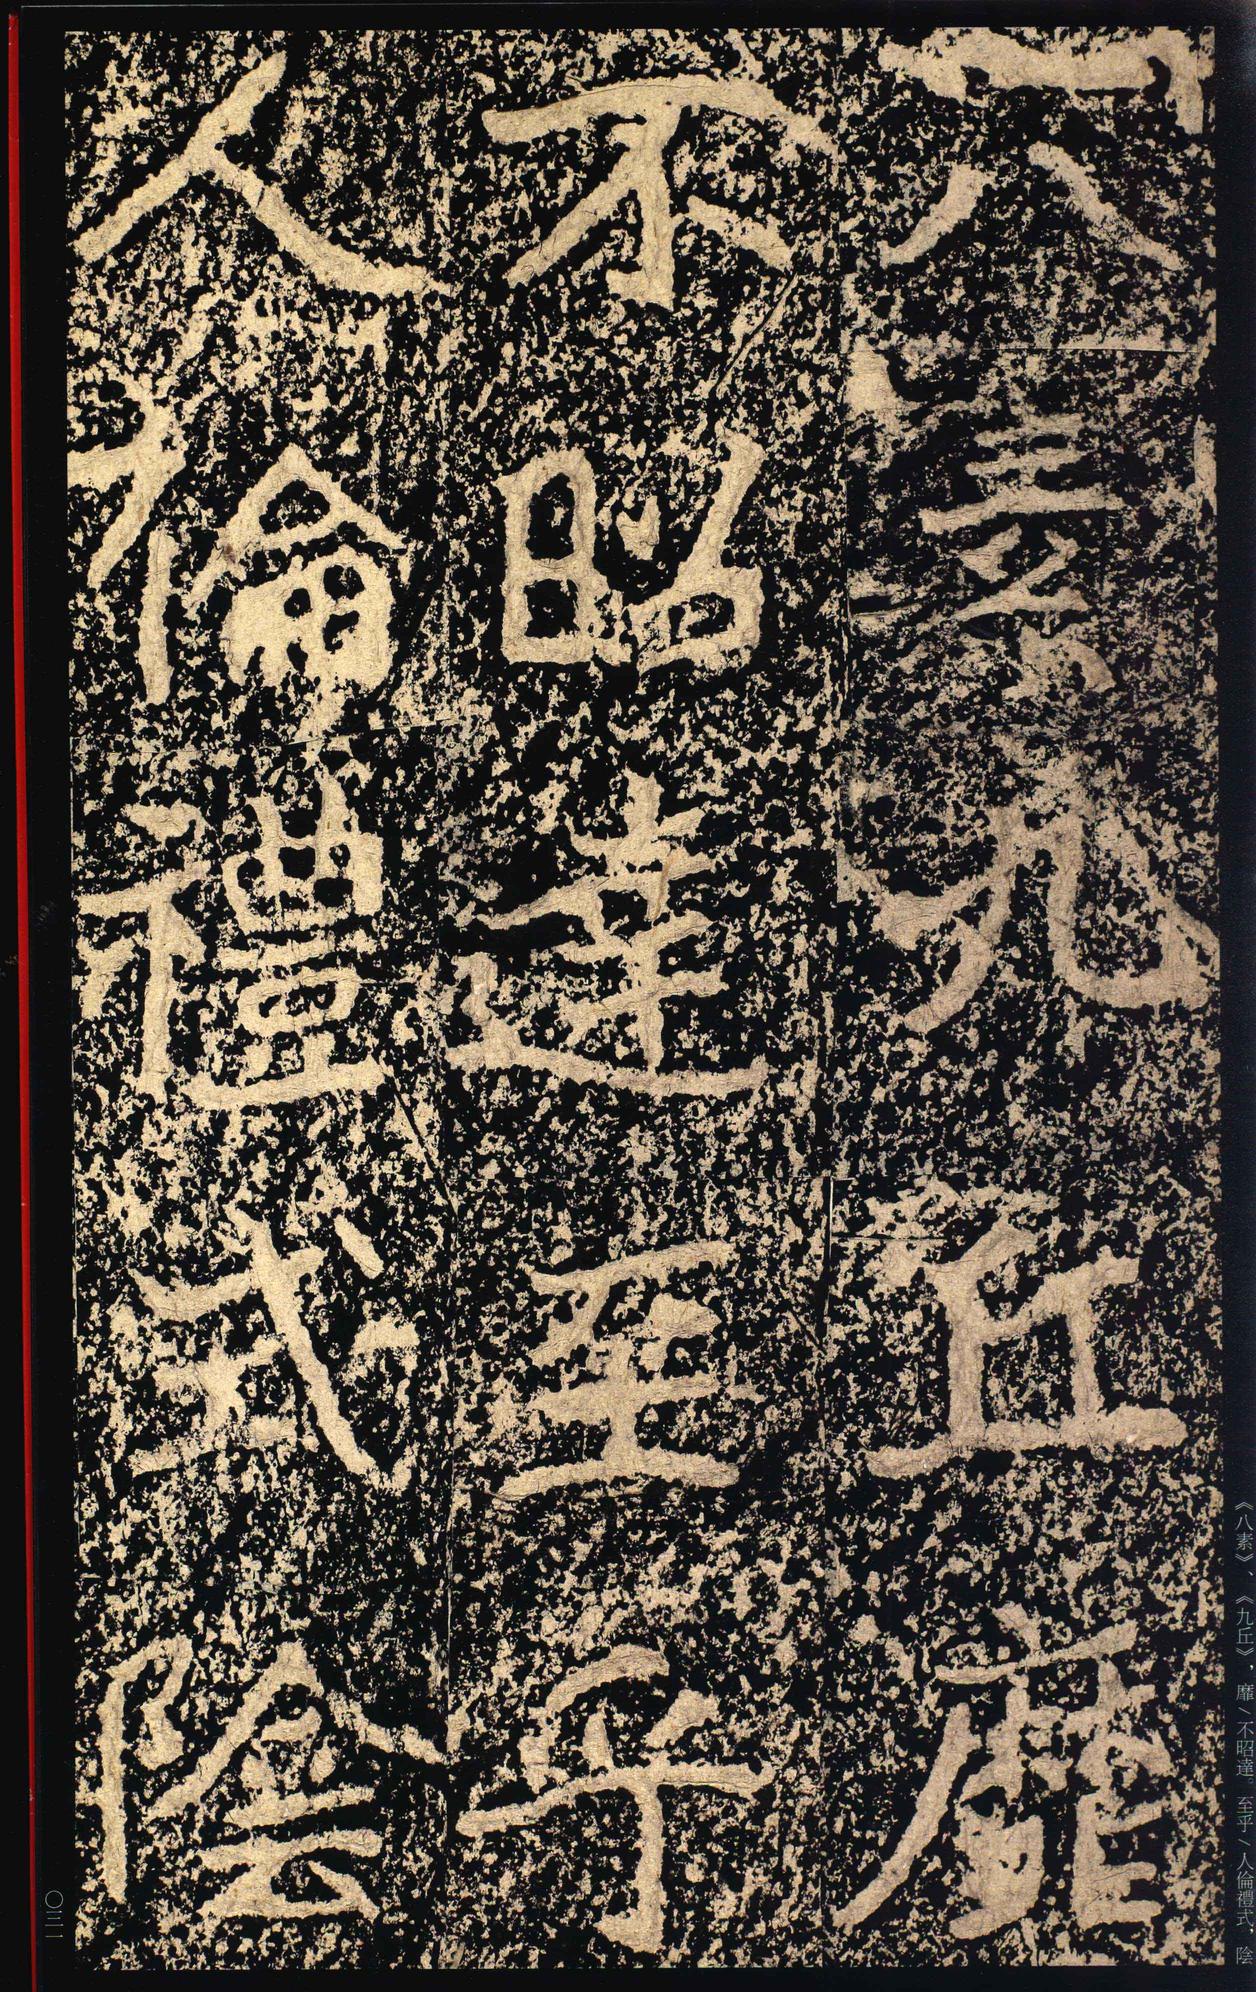 八素九丘靡
不昭達至乎
人倫禮式陰
《八素》、《九丘》，靡/不昭達，至乎/人倫禮式，陰
〇三二